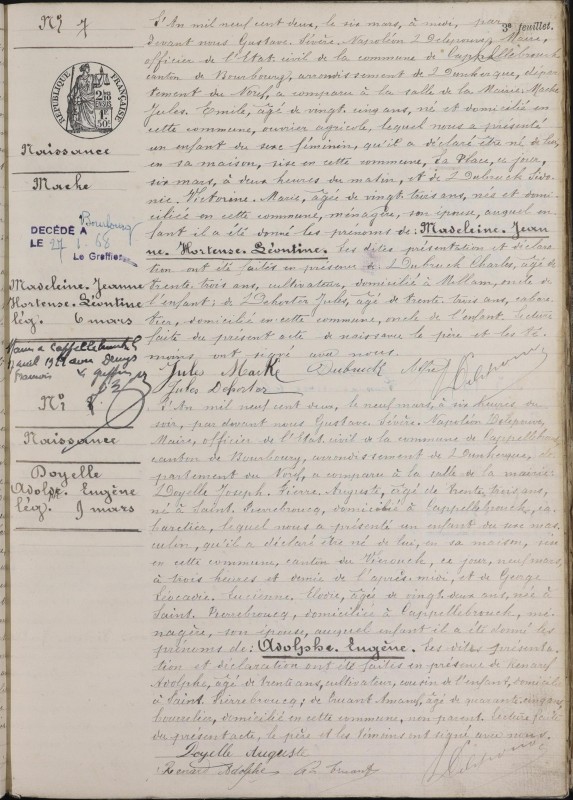 3e feuillet.
No 7
RÉPUBLIQUE FRANÇAISE
Naissance
Mache
DÉCÉDÉ À Bourbourg
LE 27 1 68
Le Greffier
Madeleine. Jeanne
Hortense. Léontine
lég. 6 mars
L'An mil neuf cent deux, le six mars, à midi, par
devant nous Gustave. Sévère. Napoléon Maire,
officier de l'Etat civil de la commune de Cappellebrouck
canton de Bourbourg, arrondissement de Dunkerque, dépar
tement du Nord, a comparu à la salle de la Mairie: Mache
Jules. Emile, âgé de vingt cinq ans, né et domicilié en
cette commune, ouvrier agricole, lequel nous a présenté
un enfant du sexe féminin, qu'il a déclaré être né de lui,
en sa maison, sise en cette commune, La Place, ce jour,
six mars, à deux heures du matin, et de Dubruck
Victorine. Marie, âgée de vingt trois ans, née et domi
ciliée en cette commune, ménagère, son épouse, auquel en
fant il a été donné les prénoms de: Madeleine. Jean
ne. Hortense. Léontine. Les dites présentation et déclara
tion ont été faites en présence de: Dubruck Charles, âgé de
trente trois ans, cultivateur, domicilié à oncle de
l'enfant; de Dehorter Jules, âgé de trente trois ans, cabare
tier, domicilié en cette commune, oncle de l'enfant. Lecture
faite du présent acte de naissance le père et les té
moins ont signé avec nous.
Jules Mache Dubruck
Jules Dehorter
No
Naissance
Doyelle
Adolphe. Eugène
lég. 9 mars
L'An mil neuf cent deux, le neuf mars, à six heures du
soir, par devant nous Gustave. Sévère. Napoléon
Maire, officier de l'Etat civil de la commune de Cappellebrouck
canton de Bourbourg, arrondissement de Dunkerque, dé
partement du Nord, a comparu à la salle de la mairie:
Doyelle Joseph. Pierre. Auguste, âgé de trente trois ans,
né à Saint. Pierrebroucq, domicilié à Cappellebrouck, ca
baretier, lequel nous a présenté un enfant du sexe mas
culin, qu'il a déclaré être né de lui, en sa maison, sise
en cette commune, ce jour, neuf mars,
à trois heures et demie de l'après-midi, et de George
Léocadie. Lucienne. âgée de vingt deux ans, née à
Saint. Pierrebroucq, domiciliée à Cappellebrouck, mé
nagère, son épouse, auquel enfant il a été donné les
prénoms de: Adolphe. Eugène. Les dites présenta
tion et déclaration ont été faites en présence de
Adolphe, âgé de trente ans, cultivateur, cousin de l'enfant, domicilié
à Saint. Pierrebroucq; de âgé de quarante cinq ans,
domicilié en cette commune, non parent. Lecture faite
du présent acte, le père et les témoins ont signé avec nous.
Doyelle Auguste
Adolphe